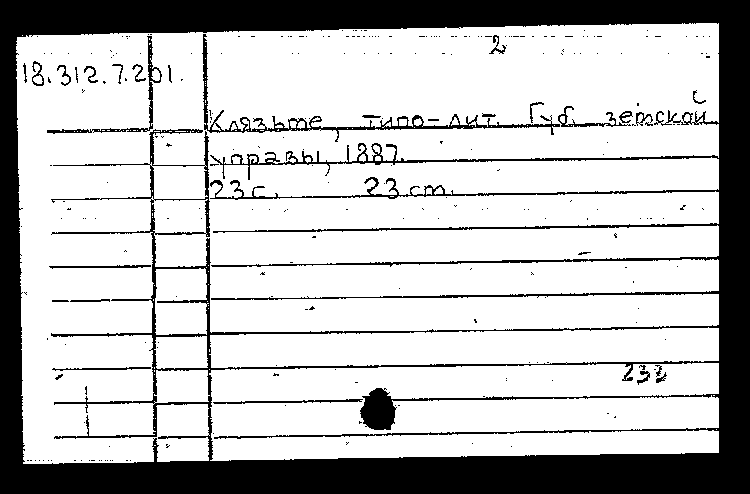 2
18.312.7.201.
Клязьме, типо-лит. Губ. земской
управы, 1887.
23 с. 23 cm.